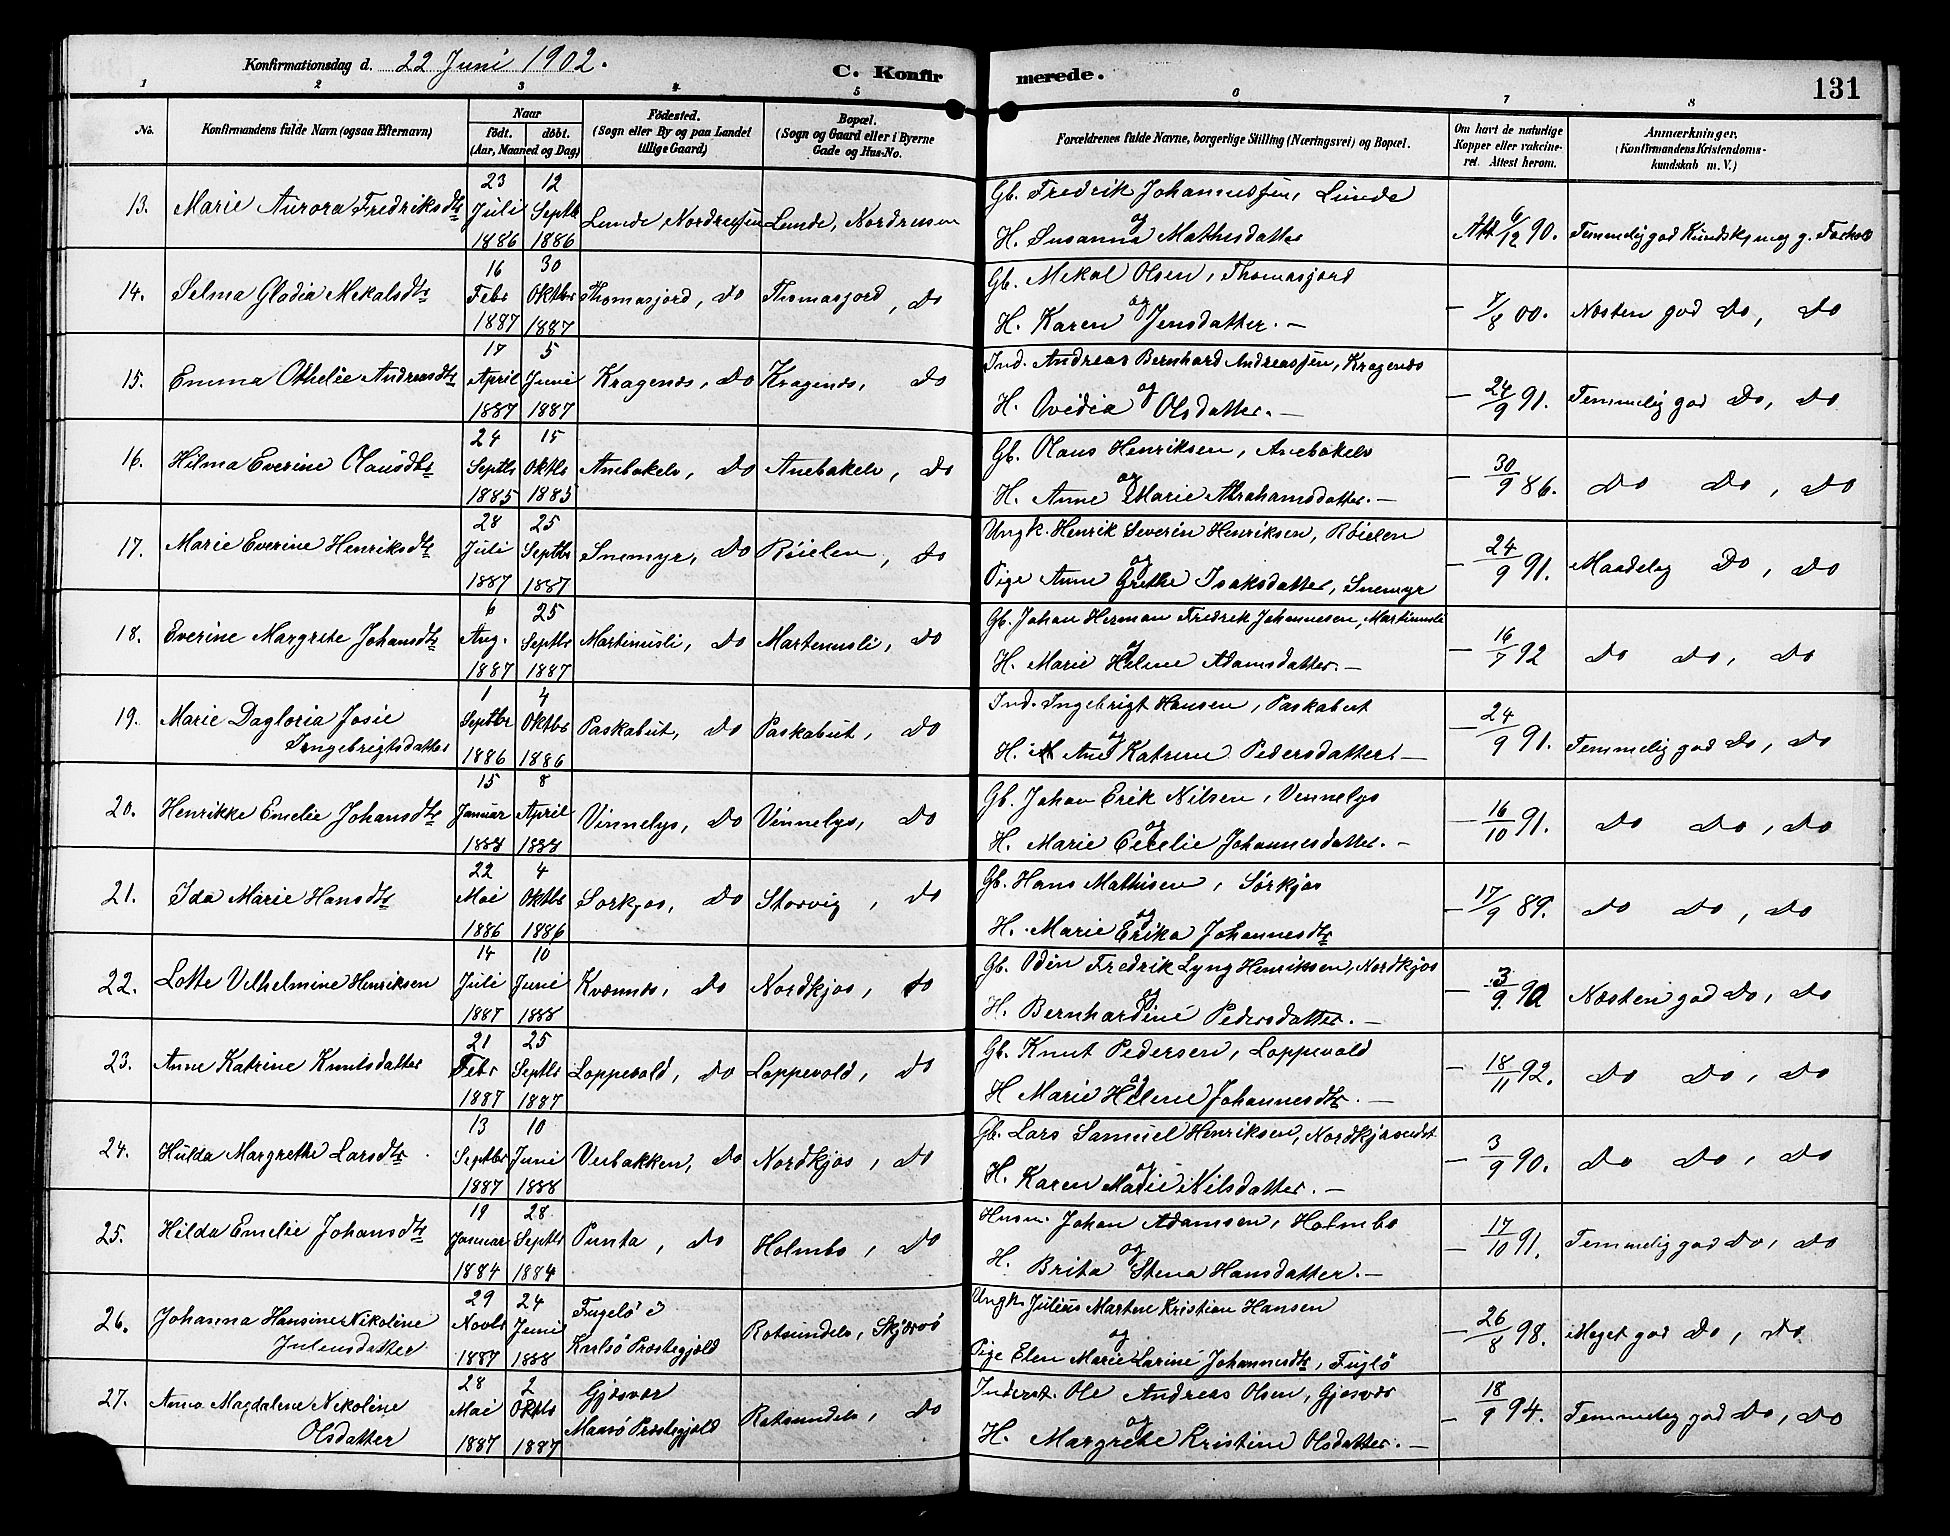 Konfirmationsdag d. 22 Juni 1902.
C. Konfirmerede.
131
1 2 3 4 5 6 7 8
No.
Konfirmandens fulde Navn (ogsaa Efternavn)
Naar
födt. döbt.
(Aar, Maaned og Dag)
Födested.
(Sogn eller By og paa Landet
tillige Gaard)
Bopæl.
(Sogn og Gaard eller i Byerne
Gade og Hus-No.
Forældrenes fulde Navne, borgerlige Stilling (Næringsvei) og Bopæl.
Om havt de naturlige
Kopper eller vakcine-
ret. Attest herom.
Anmærkninger.
(Konfirmandens Kristendoms-
kundskab m. V.)
13. Marie Aurora Fredriksdtr 23 Juli 1886 12 Septbr 1886 Lunde, Nordreisen Lunde, Nordreisen
Gb. Fredrik Johannessen, Lunde
og
H. Susanna Mathisdatter
Att. 6/12 90. Temmelig god Kundsk. meg g. Forhold
14. Selma Gladia Mekalsdtr 16 Febr 1887 30 Oktbr 1887 Thomasjord, do Thomasjord, do
Gb. Mekal Olsen, Thomasjord
og
H. Karen Jensdatter. —
— 7/8 00. Næsten god do, do
15. Emma Othelie Andreasdtr 17 April 1887 5 Juni 1887 Kragenæs, do Kragenæs, do
Ind. Andreas Bernhard Andreassen, Kragenæs
og
H. Ovidia Olsdatter. —
— 24/9 91. Temmelig god do, do
16. Hilma Everine Olausdtr 24 Septbr 1885 15 Oktbr 1885 Anebakelv, do Anebakelv, do
Gb. Olaus Henriksen, Anebakelv
og
H. Anne Marie Abrahamsdatter. —
— 30/9 86. do do, do
17. Marie Everine Henriksdtr 28 Juli 1887 25 Septbr 1887 Snemyr, do Röielen, do
Ungk. Henrik Severin Henriksen, Röielen
og
Pige Anne Grethe Isaksdatter, Snemyr
— 24/9 91. Maadelig do, do
18. Everine Margrete Johansdtr 6 Aug. 1887 25 Septbr 1887 Martinusli, do Martinusli, do
Gb. Johan Herman Fredrik Johannesen, Martinusli
og
H. Marie Helene Adamsdatter. —
— 16/7 92 do do, do
19. Marie Dagloria Josie
Ingebrigtsdatter 1 Septbr 1886 4 Oktbr 1886 Paskabut, do Paskabut, do
Ind. Ingebrigt Hansen, Paskabut
og
H. Ane Katrine Pedersdatter. —
— 24/9 91. Temmelig god do, do
20. Henrikke Emelie Johansdtr 15 Januar 1888 8 April 1888 Vinnelys, do Vinnelys, do
Gb. Johan Erik Nilsen, Vinnelys
og
H. Marie Cecelie Johannesdatter. —
— 16/10 91. do do, do
21. Ida Marie Hansdtr 22 Mai 1886 4 Oktbr 1886 Sorkjos, do Storvig, do
Gb. Hans Mathisen, Sörkjos
og
H. Marie Erika Johannesdtr
— 17/9 89. do do, do
22. Lotte Vilhelmine Henriksen 14 Juli 1887 10 Juni 1888 Kvænnes, do Nordkjos, do
Gb. Odin Fredrik Lyng Henriksen, Nordkjos
og
H. Bernhardine Pedersdatter. —
— 3/9 90 Næsten god do, do
23. Anne Katrine Knutsdatter 21 Febr 1887 25 Septbr 1887 Loppevold, do Loppevold, do
Gb. Knut Pedersen, Loppevold
og
H Marie Helene Johannesdtr. —
— 18/11 92. do do, do
24. Hulda Margrethe Larsdtr 13 Septbr 1887 10 Juni 1888 Veibakken, do Nordkjos, do
Gb. Lars Samuel Henriksen, Nordkjoseidet
og
H. Karen Marie Nilsdatter. —
— 3/9 90. do do, do
25. Hilda Emelie Johansdtr 19 Januar 1884 28 Septbr 1884 Punta, do Holmbo, do
Husm. Johan Adamsen, Holmbo
og
H. Brita Stina Hansdatter. —
— 17/10 91. Temmelig god do, do
26. Johanna Hansine Nikoline
Juliusdatter 29 Novbr 1887 24 Juni 1888 Fugelö i
Karlsö Præstegjæld Rotsundelv, Skjærvö
Ungk. Julius Martin Kristian Hansen
og
Pige Elen Marie Larine Johannesdtr, Fuglö
— 26/8 98. Meget god do, do
27. Anna Magdalene Nikoline
Olsdatter 28 Mai 1887 2 Oktbr 1887 Gjæsvær
Maasö Præstegjæld Rotsundelv, do
Inderst. Ole Andreas Olsen, Gjesvær
og
H. Margrete Kristine Olsdatter. —
— 18/9 94. Temmelig god do, do